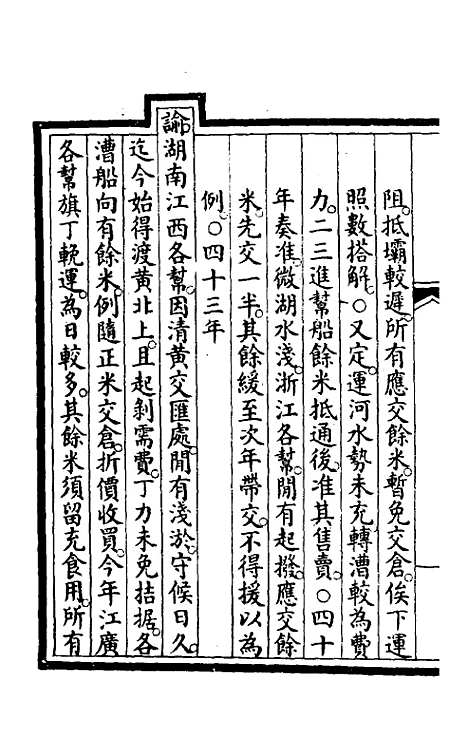 阻。抵壩較遲。所有應交餘米。暫免交倉。俟下運
照數搭解。○又定。運河水勢未充。轉漕較為費
力。二三進幫船餘米抵通後。准其售賣。○四十
年奏准。微湖水淺。浙江各幫。閒有起撥。應交餘
米。先交一半。其餘緩至次年帶交。不得援以為
例。○四十三年
諭湖南江西各幫。因清黃交匯處。閒有淺淤。守候日久。
迄今始得渡黃北上。且起剝需費。丁力未免拮据。各
漕船向有餘米。例隨正米交倉。折價收買。今年江廣
各幫旗丁輓運。為日較多。其餘米須留充食用。所有